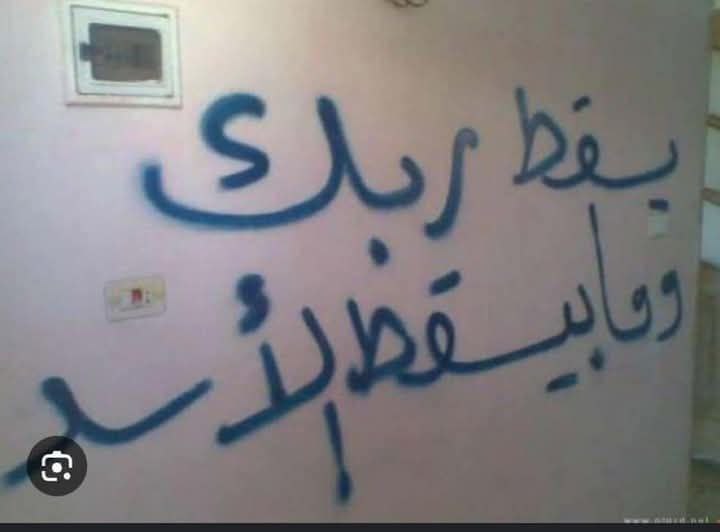 يقط ربك
وما بيسقط الأسد